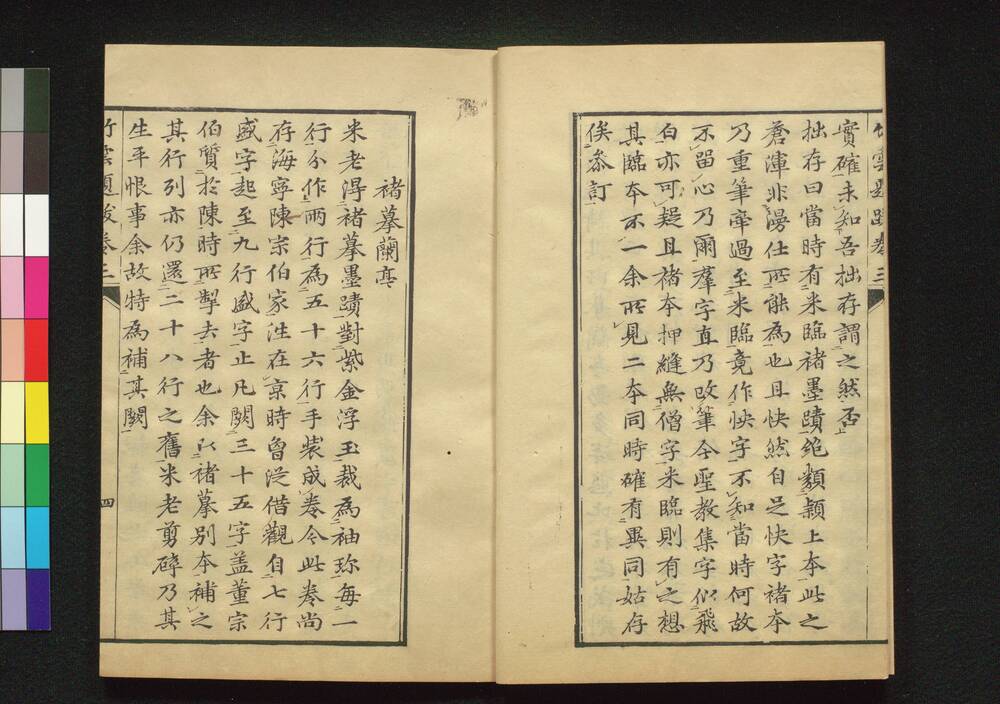 竹雲題跋卷三
實確未知吾拙存謂之然否
拙存曰當時有米臨褚墨蹟絕類潁上本此之
蒼渾非漫仕所能為也且快然自足快字褚本
乃重筆牽過至米臨竟作快字不知當時何故
不留心乃爾羣字直乃改筆今聖教集字似飛
白亦可疑且褚本押縫無僧字米臨則有之想
其臨本不一余所見二本同時確有異同姑存
俟叅訂
褚摹蘭亭
米老淂褚摹墨蹟對紫金浮玉裁為袖珎每一
行分作兩行為五十六行手裝成卷今此卷尚
存海寧陳宗伯家泩在京時曾従借觀自七行
盛字起至九行盛字止凡闕三十五字盖董宗
伯質於陳時所掣去者也余以褚摹別本補之
其行列亦仍還二十八行之舊米老剪碎乃其
生平恨事余故特為補其闕
竹雲題跋卷三
四